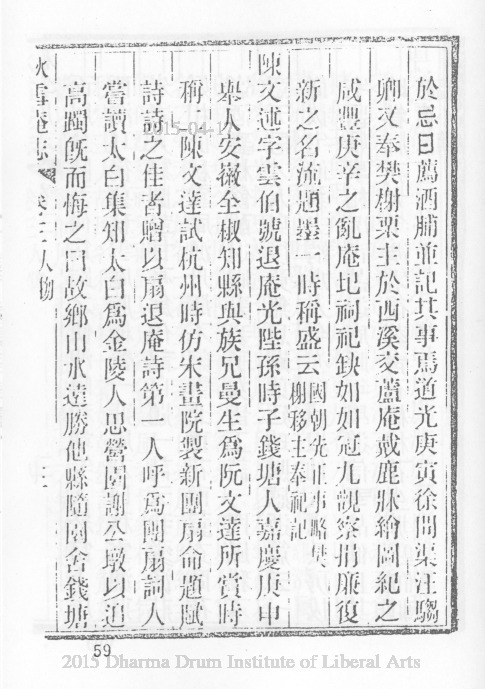 於忌日薦酒脯並記其事焉道光庚寅徐問渠汪騶
卿又奉樊榭栗主於西溪交蘆庵戴鹿牀繪圖紀之
咸豐庚辛之亂庵圮祠祀缺如如冠九觀察捐廉復
新之名流題墨一時稱盛云國朝先正事略樊
榭移主奉祀記
陳文述字雲伯號退庵光陛孫時子錢塘人嘉慶庚申
舉人安徽全椒知縣與族兄曼生爲阮文達所賞時
稱二陳文達試杭州時仿宋畫院製新團扇命題賦
詩詩之佳者贈以扇退庵詩第一人呼爲團扇詞人
嘗讀太白集知太白爲金陵人思營園謝公墩以追
高躅旣而悔之曰故鄉山水遠勝他縣隨園舍錢塘
秋雪庵志 卷三人物 
2015-04-1
59
2015 Dharma Drum Institute of Liberal Arts